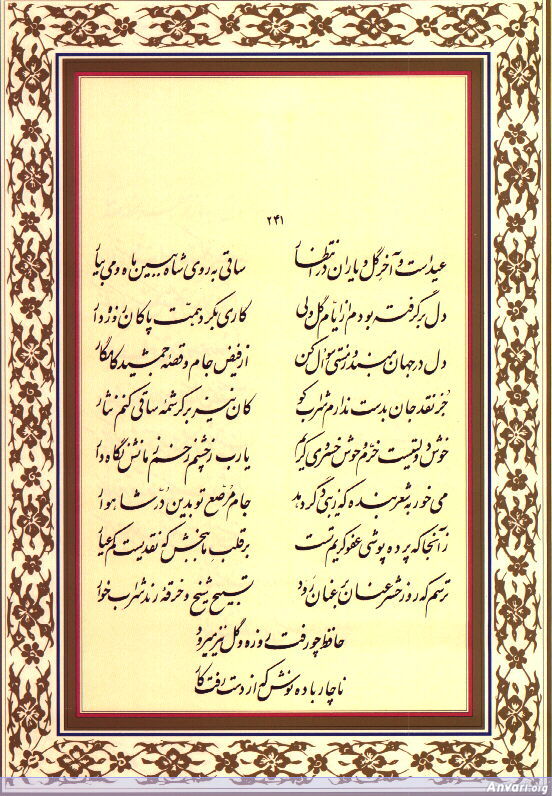 ۲۴۱
عید است و آخر گل و یاران در انتظار ساقی به روی شاه ببین ماه و می بیار
دل برگرفته بودم از ایام گل ولی کاری بکرد همت پاکان روزه دار
دل در جهان مبند و ز مستی سؤال کن از فیض جام و قصه جمشید کامگار
جز نقد جان به دست ندارم شراب کو کان نیز بر کرشمه ساقی کنم نثار
خوش دولتیست خرم و خوش خسروی کریم یارب ز چشم زخم زمانش نگاه دار
می خور به شعر بنده که زیبی دگر دهد جام مرصع تو بدین در شاهوار
زآنجا که پرده پوشی عفو کریم تست بر قلب ما ببخش که نقدیست کم عیار
ترسم که روز حشر عنان بر عنان رود تسبیح شیخ و خرقه رند شراب خوار
حافظ چو رفت روزه و گل نیز میرود
ناچار باده نوش که از دست رفت کار
Anvari.org